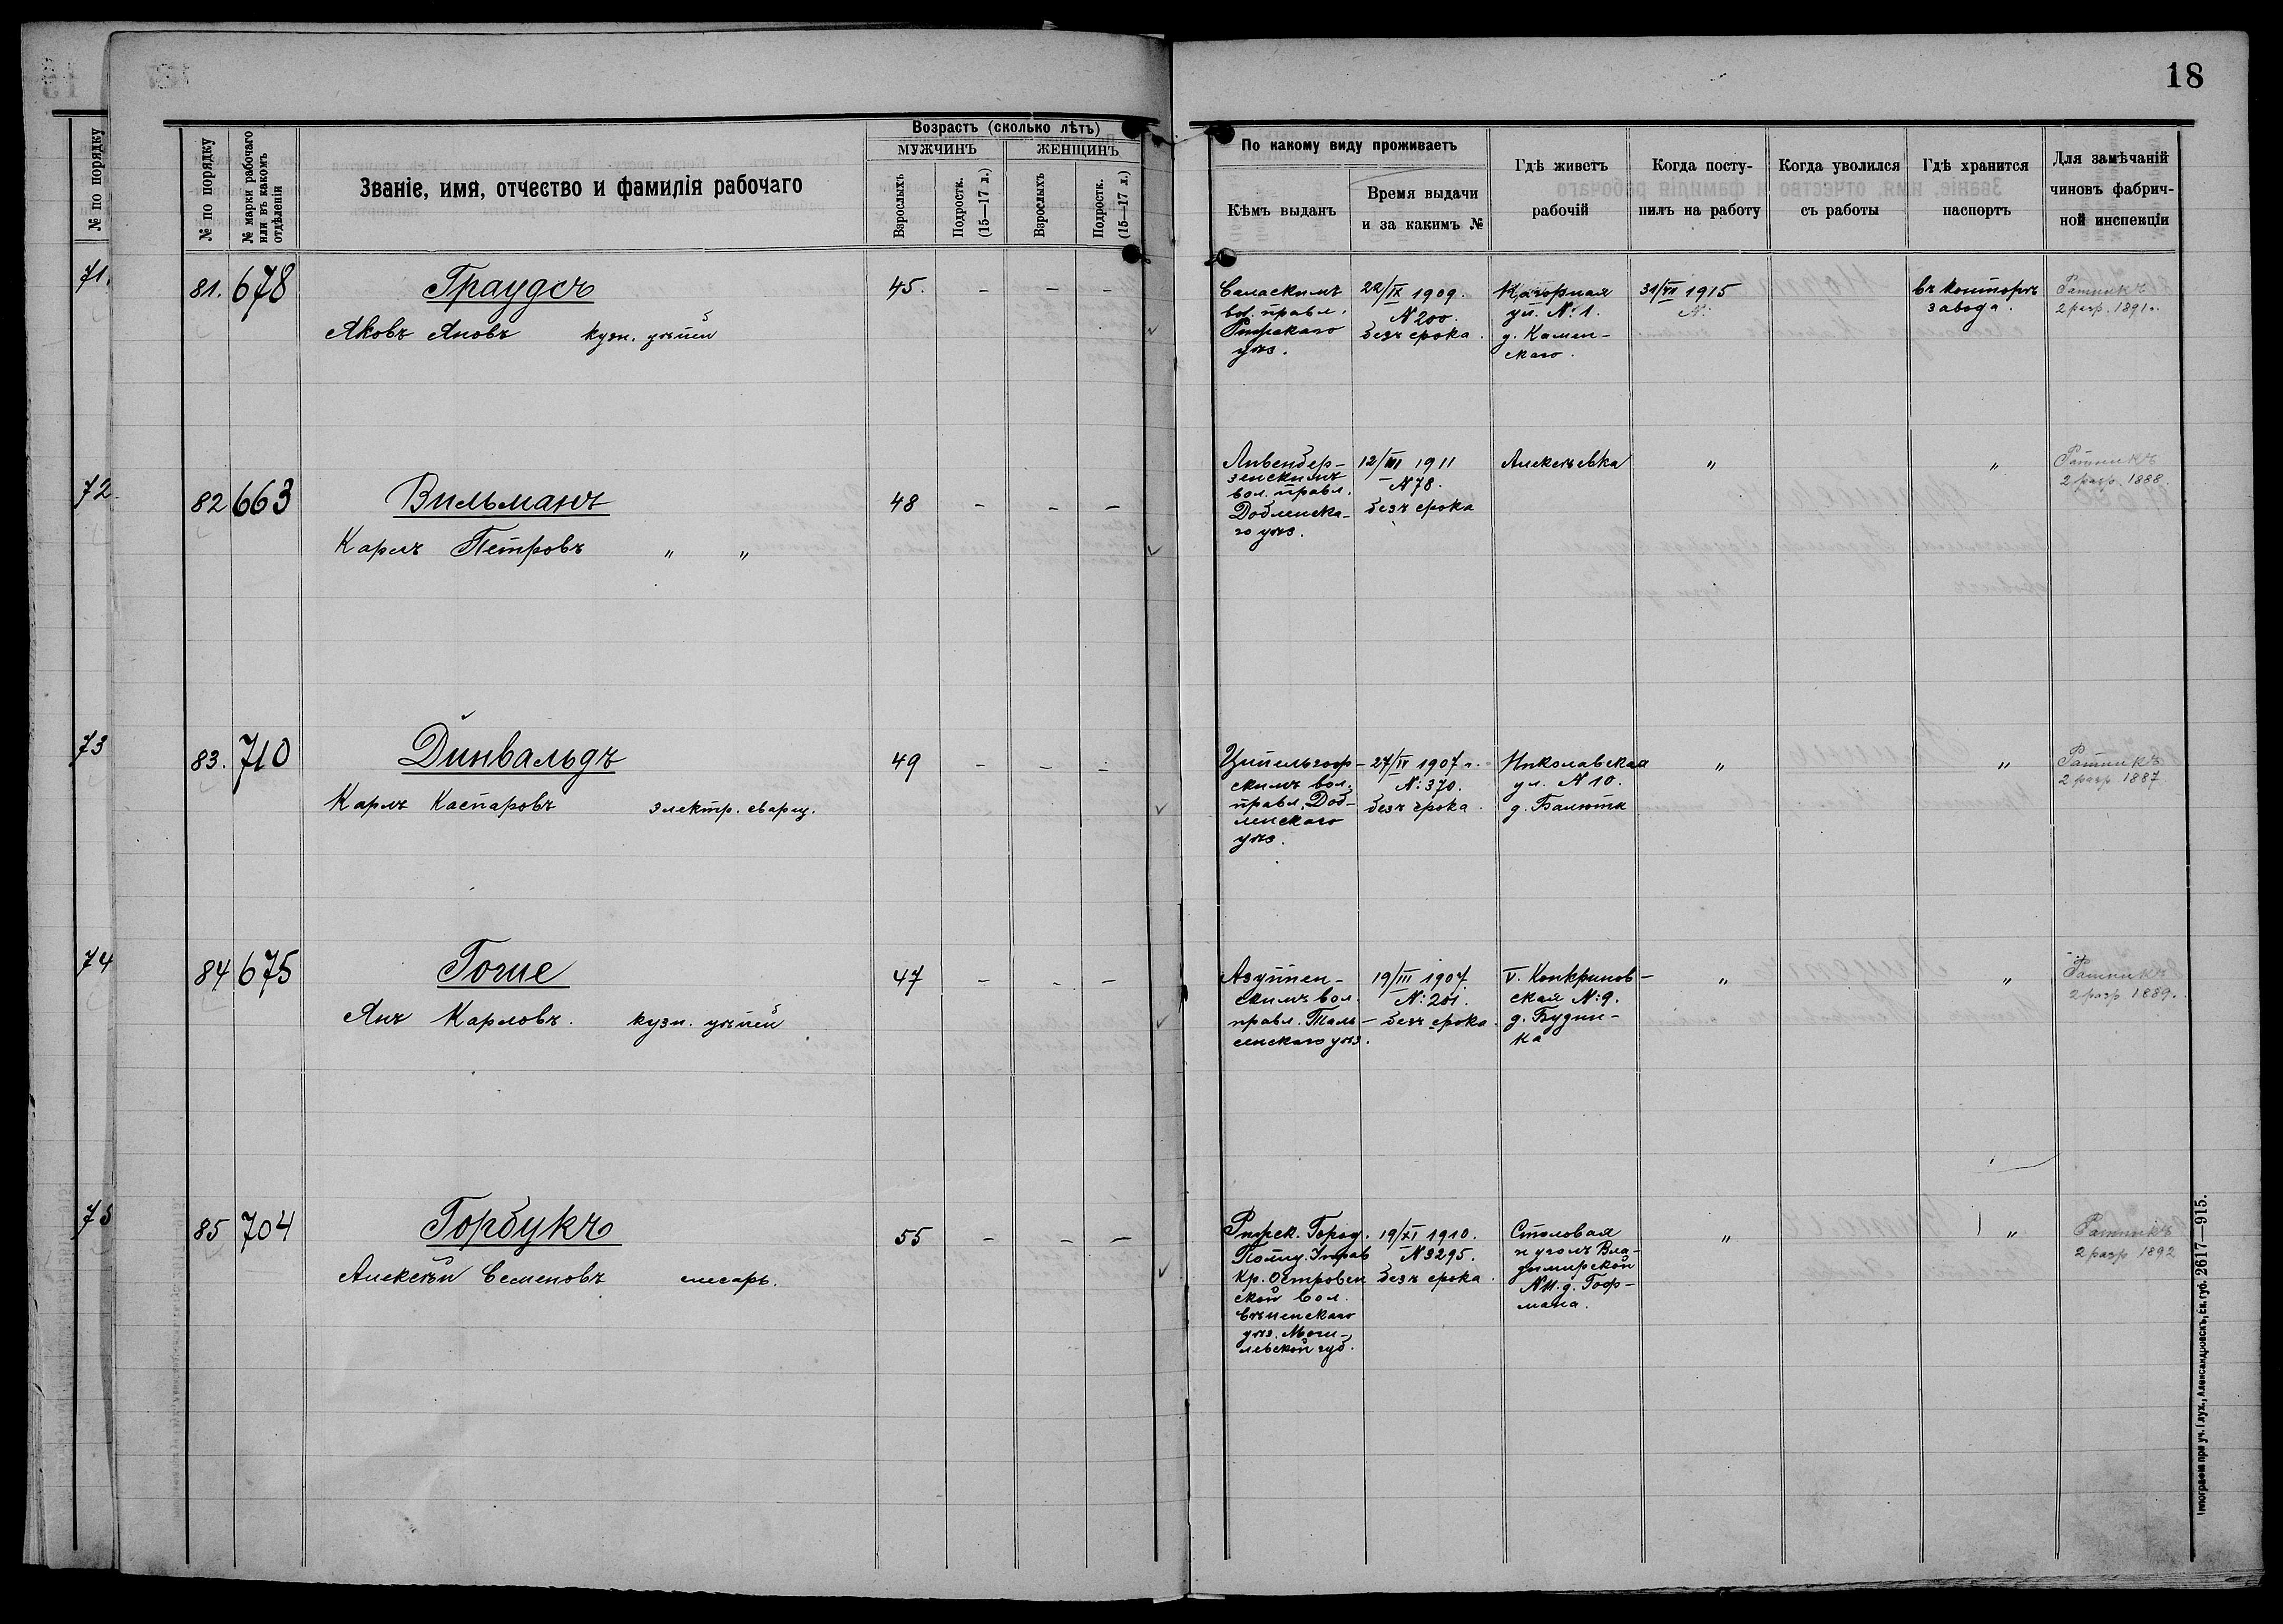 18
№ по порядку
71.
72.
73
74
75
№ по порядку
№ марки рабочаго
или въ какомъ
отдѣленіи
Званіе, имя, отчество и фамилія рабочаго
Возрастъ (сколько лѣтъ)
МУЖЧИНЪ
ЖЕНЩИНЪ
Взрослыхъ
Подростк.
(15—17 л.)
Взрослыхъ
Подростк.
(15—17 л.)
По какому виду проживаетъ
Кѣмъ выданъ
Время выдачи
и за какимъ №
Гдѣ живетъ
рабочій
Когда посту-
пилъ на работу
Когда уволился
съ работы
Гдѣ хранится
паспортъ
Для замѣчаній
чиновъ фабрич-
ной инспекціи
81. 678
Граудсъ
Яковъ Яновъ кузн.
45. — — —
вол. правл.
Рижскаго
уѣз.
22/IX 1909.
№ 200.
безъ срока.
Нагорная
ул. №: 1.
д. Камен-
скаго.
31/VII 1915
въ конторѣ
завода.
Ратникъ
2 разр. 1891.
82 663
Вильманъ
Карлъ Петровъ " "
48 — — —
Ливенбер-
зенскимъ
вол. правл.
Добленска-
го уѣз.
12/III 1911
№ 78.
безъ срока
Алексѣевка
"
"
Ратникъ
2 разр. 1888.
83. 710
Динвальдъ
Карлъ Каспаровъ электр. сварщ.
49 — — —
Ципельгоф-
скимъ вол.
правл. Доб-
ленскаго
уѣз.
27/IV 1907 г.
№: 370.
безъ срока.
Николаевская
ул. № 10.
д. Балюты
"
"
Ратникъ
2 разр. 1887
84 675
Гогие
Янъ Карловъ. кузн.
47 — — —
скимъ вол.
правл. Таль-
сенскаго уѣз.
19/III 1907.
№: 201.
безъ срока.
V. Конкринов-
ская №: 9.
д. Будни-
ка
"
"
Ратникъ
2 разр. 1889.
85 704
Горбукъ
Алексѣй Семеновъ слесарь.
55 — — —
Рижск. Город.
Полиц. Управ
Кр. Островен
ской вол.
Сѣненскаго
уѣз. Моги-
левской губ.
19/XI 1910.
№ 3295.
безъ срока.
Столовая
и уголъ Вла-
димирской
№ 11. д. Гоф-
мана.
"
"
Ратникъ
2 разр 1892
Типографія при уч. Глух., Александровскъ, Ек. губ. 2617—915.